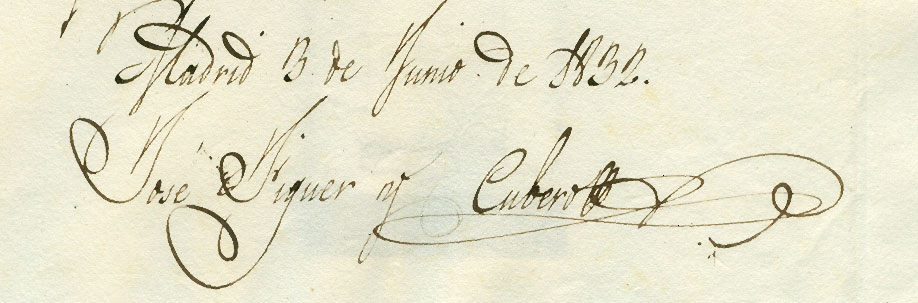 Madrid 3 de Junio de 1832.
José Siguer y Cubero